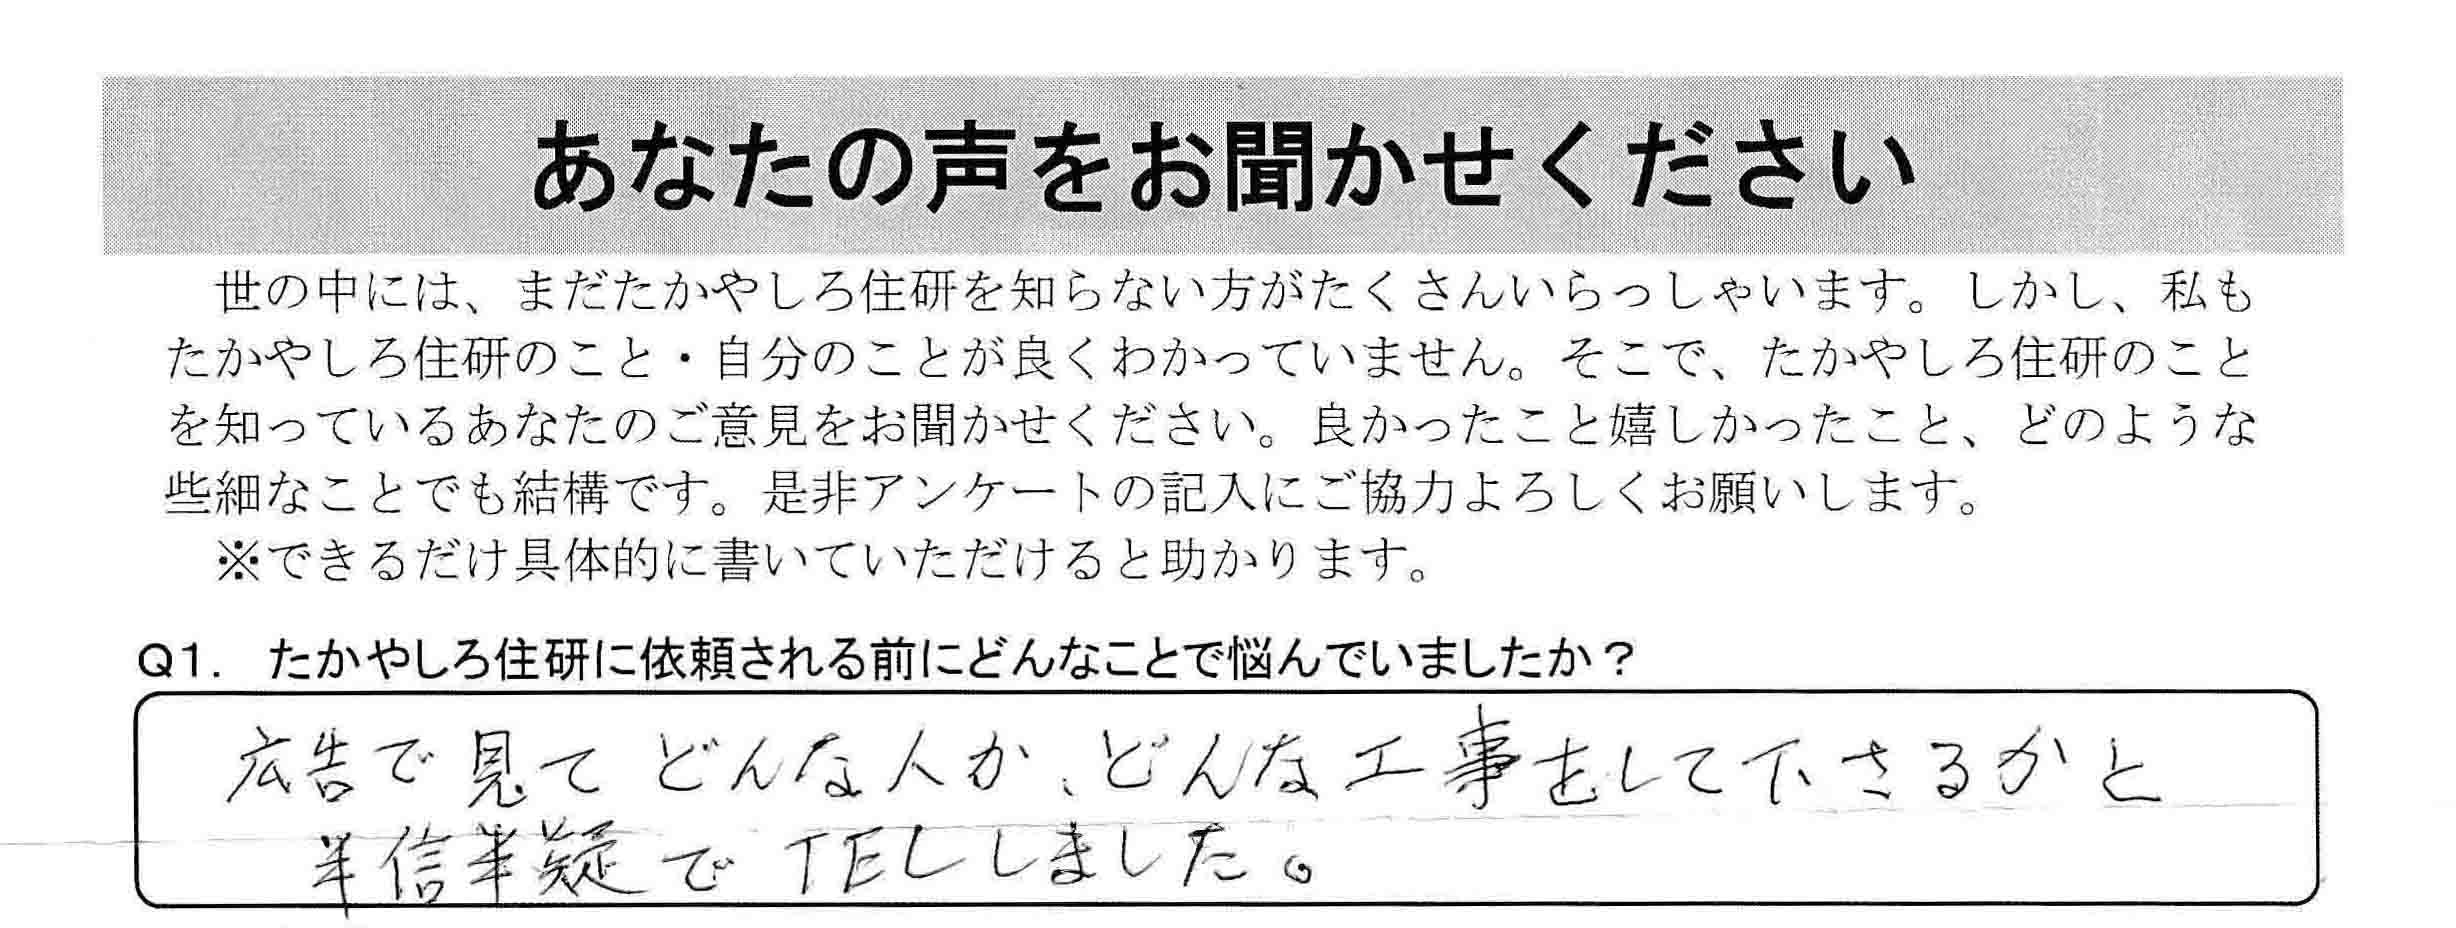 あなたの声をお聞かせください
世の中には、まだたかやしろ住研を知らない方がたくさんいらっしゃいます。しかし、私も
たかやしろ住研のこと・自分のことが良くわかっていません。そこで、たかやしろ住研のこと
を知っているあなたのご意見をお聞かせください。良かったこと嬉しかったこと、どのような
些細なことでも結構です。是非アンケートの記入にご協力よろしくお願いします。
※できるだけ具体的に書いていただけると助かります。
Q1. たかやしろ住研に依頼される前にどんなことで悩んでいましたか？
広告で見てどんな人か、どんな工事をして下さるかと
半信半疑でTELしました。